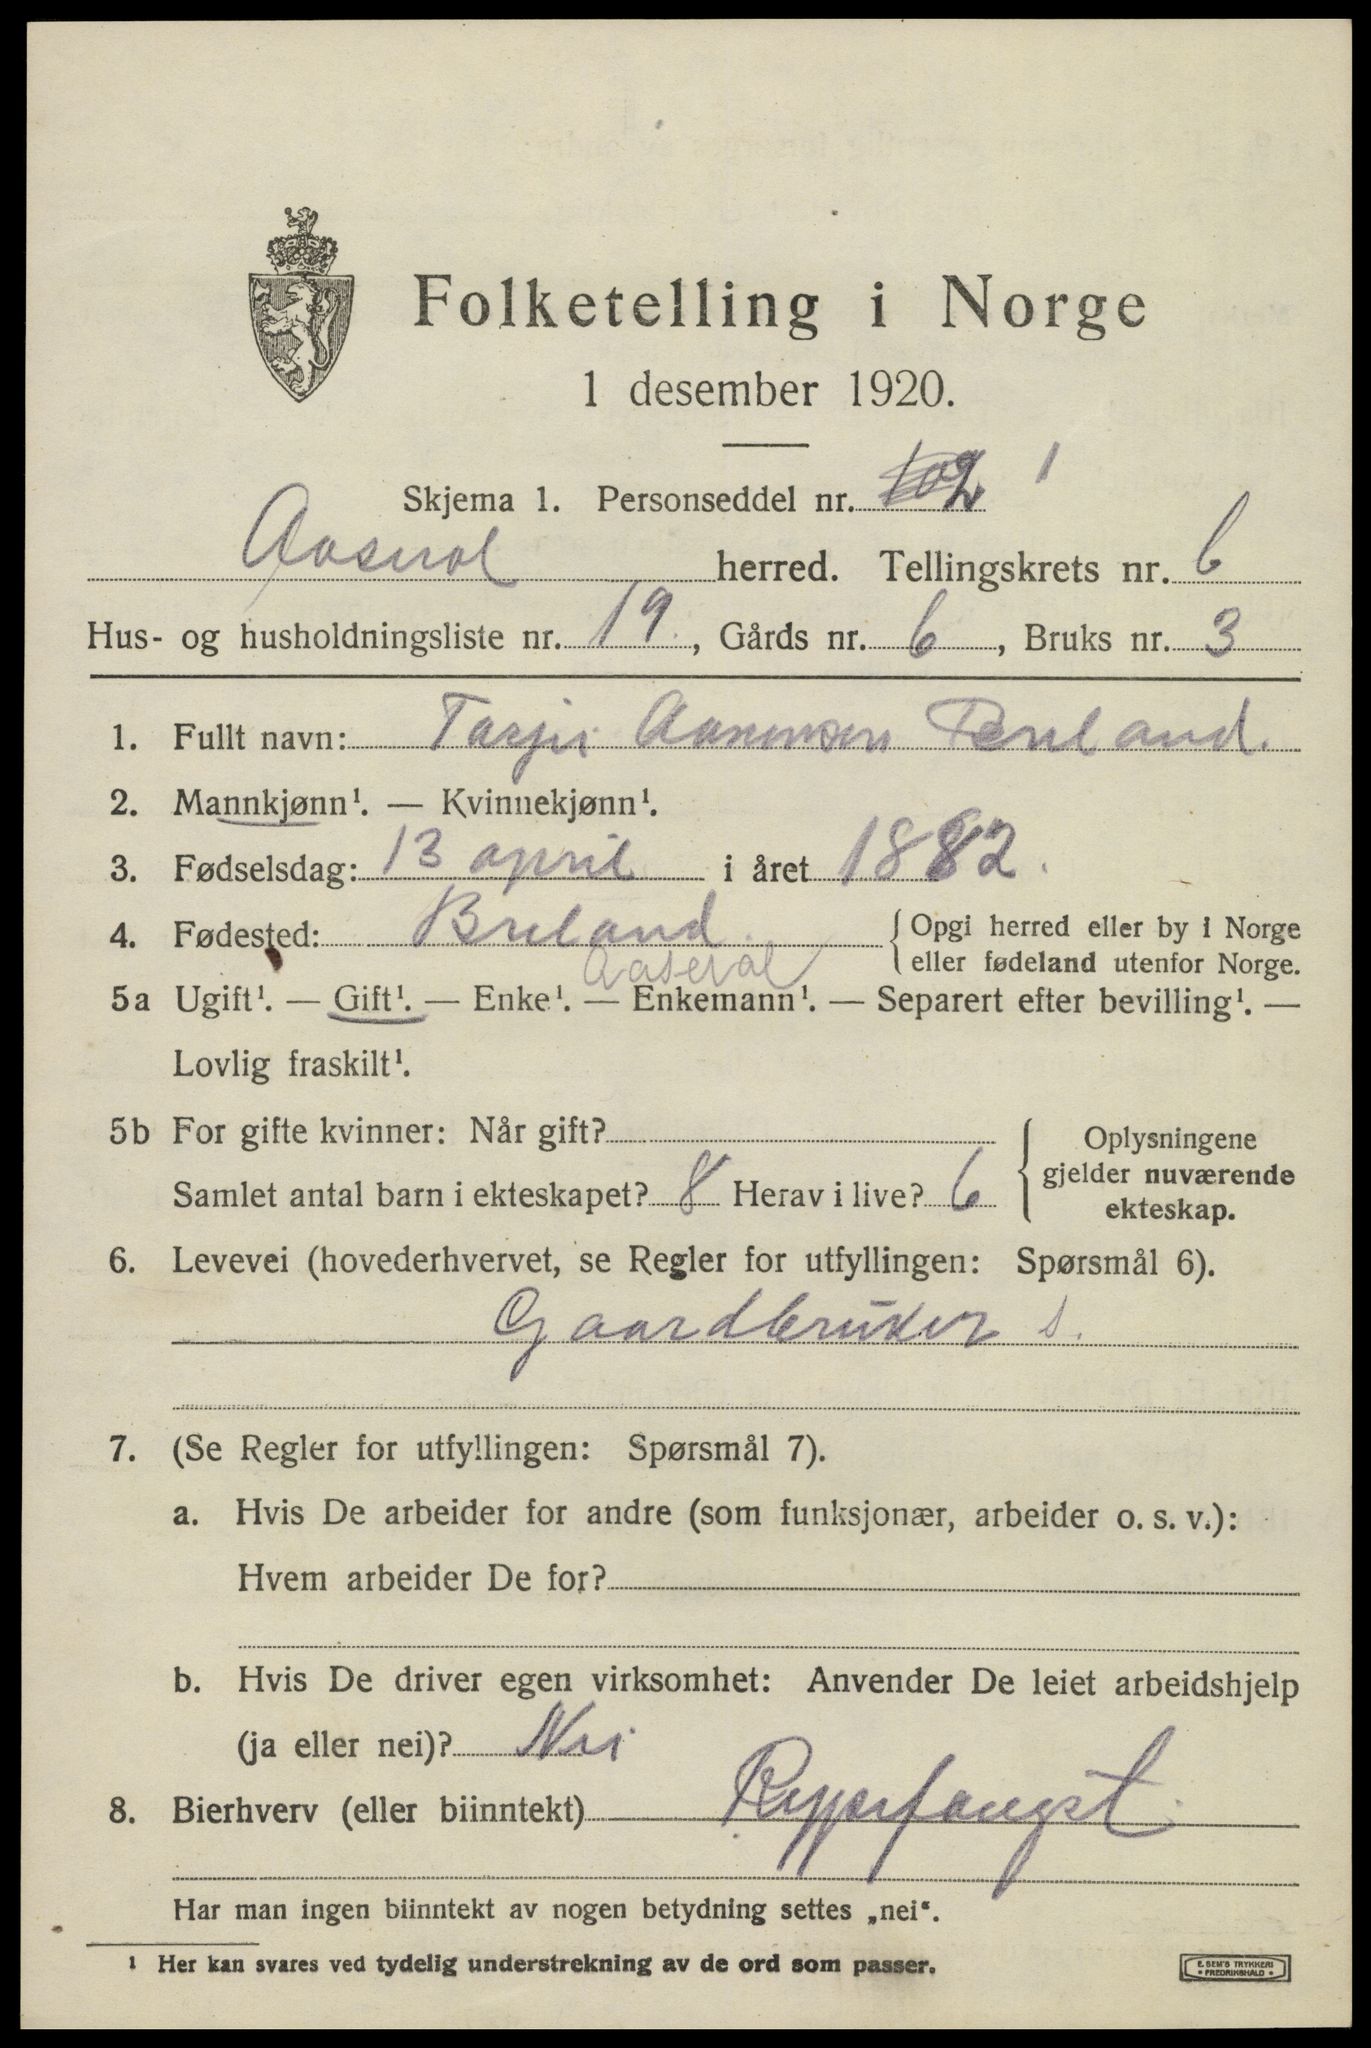 Folketelling i Norge
1 desember 1920.
Skjema 1. Personseddel nr. 1
Aaseral herred. Tellingskrets nr. 6
Hus- og husholdningsliste nr. 19, Gårds nr. 6, Bruks nr. 3
1. Fullt navn: Tarjei Aanensen
2. Mannkjønn¹. — Kvinnekjønn¹.
3. Fødselsdag: 13 april i året 1882.
4. Fødested: Breland. { Opgi herred eller by i Norge
Aaseral eller fødeland utenfor Norge.
5a Ugift¹. — Gift¹. — Enke¹. — Enkemann¹. — Separert efter bevilling¹. —
Lovlig fraskilt¹.
5b For gifte kvinner: Når gift? { Oplysningene
gjelder nuværende
Samlet antal barn i ekteskapet? 8 Herav i live? 6
ekteskap.
6. Levevei (hovederhvervet, se Regler for utfyllingen: Spørsmål 6).
Gaardbruker s.
7. (Se Regler for utfyllingen: Spørsmål 7).
a. Hvis De arbeider for andre (som funksjonær, arbeider o. s. v.):
Hvem arbeider De for?
b. Hvis De driver egen virksomhet: Anvender De leiet arbeidshjelp
(ja eller nei)? Nei
8. Bierhverv (eller biinntekt) Rypefangst.
Har man ingen biinntekt av nogen betydning settes „nei“.
¹ Her kan svares ved tydelig understrekning av de ord som passer.
E. SEM'S TRYKKERI
• FREDRIKSHALD •